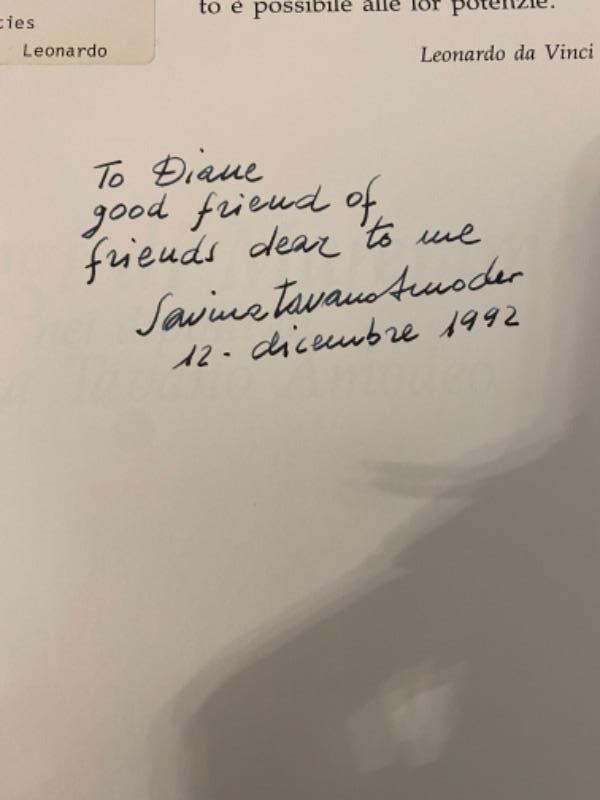 cies
Leonardo
to è possibile alle lor potenzie.
Leonardo da Vinci
To Diane
good friend of
friends dear to me
Savina Tavano Amodeo
12. dicembre 1992
Tavano Amodeo